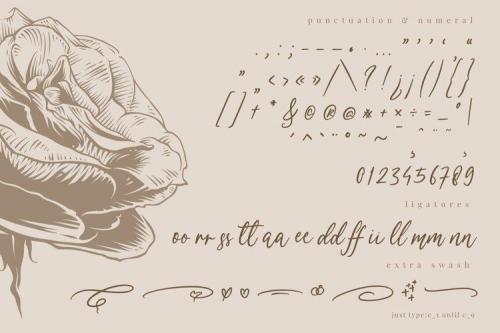 punctuation & numeral
. , : ; … - – — • . ... " " ' ' " „
" ‹ › « » / \ ? ! ¿ ¡ ( | ) { }
[ ] + * & © ® @ × + × ÷ = _ ° |
0123456789
ligatures
oo rr ss tt aa ee dd ff ii ll mm nn
extra swash
just type:c_1 until c_9